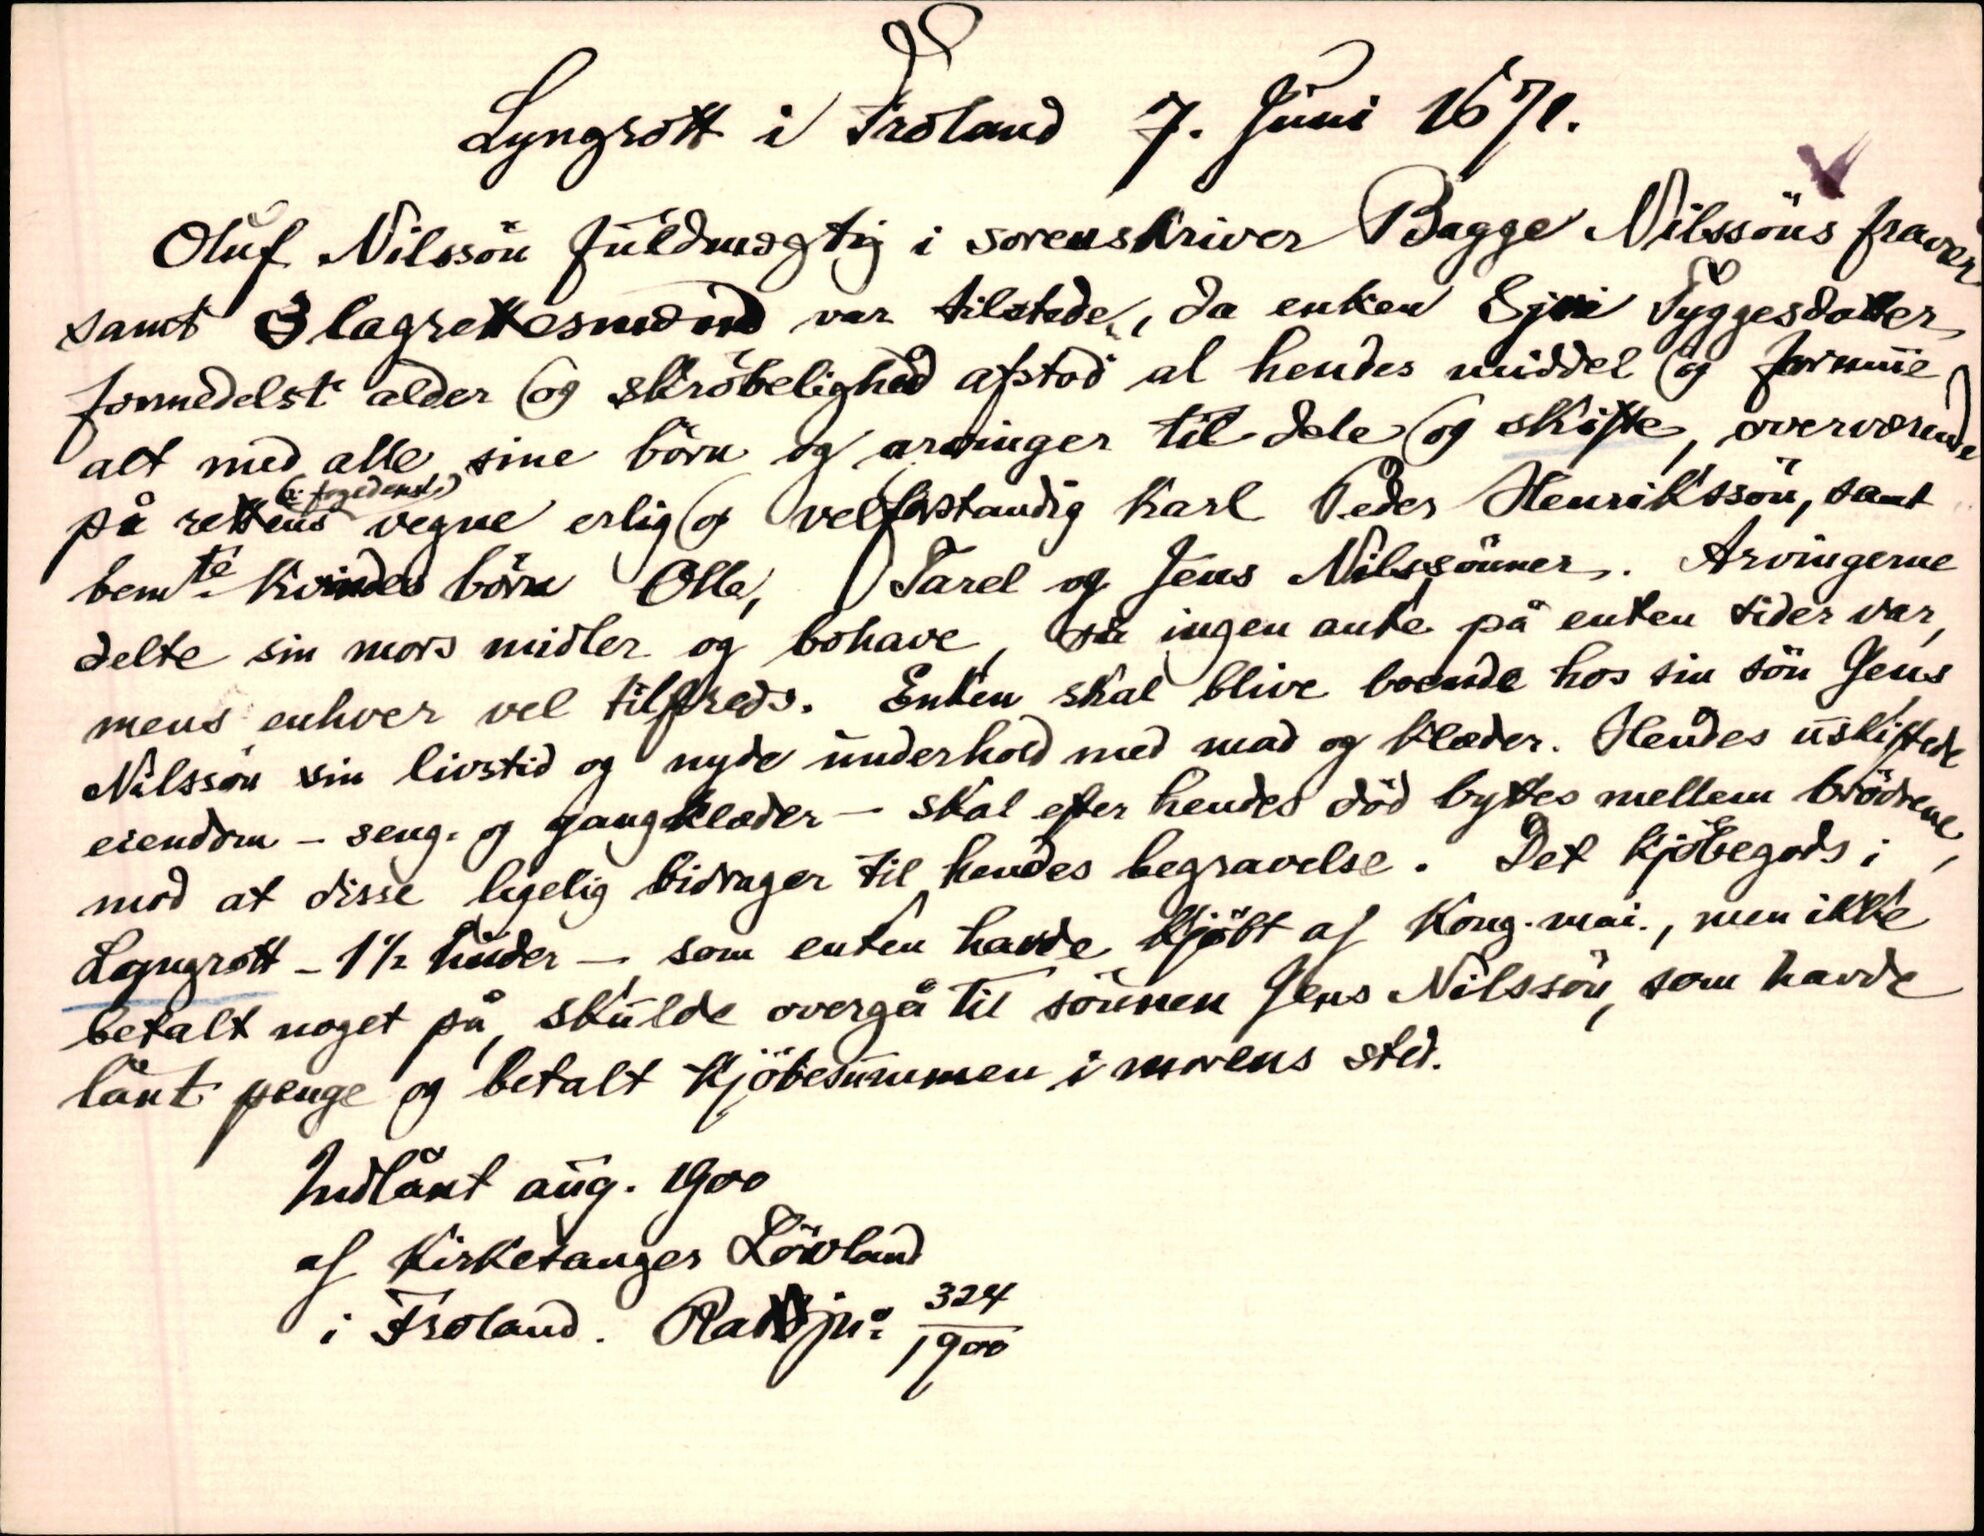 Lyngrott i Froland 7. Juni 1671.
Oluf Nilssön fuldmægtig i sorenskriver Bagge Nilssöns fravær
samt 3 lagrettesmænd var tilstede, da enken Tyggesdatter
formedelst alder og skröbelighed afstod al hendes middel og formue
alt med alle sine börn og arvinger til dele og skifte, overværende
på rettens (ɔ: fogedens) vegne erlig og velforstandig karl Peder Henrikssön, samt
bemte kvindes börn Olle, Tarel og Jens Nilssönner. Arvingerne
delte sin mors midler og bohave, så ingen anke på enten sider var,
mens enhver vel tilfreds. Enken skal blive boende hos sin sön Jens
Nilssön sin livstid og nyde underhold med mad og klæder. Hendes uskiftede
eiendom - seng- og gangklæder - skal efter hendes död byttes mellem brödrene,
mod at disse ligelig bidrager til hendes begravelse. Det kjöbegods i
Lyngrott - 1 1/2 huder - som enken havde kjöbt af Kong. mai., men ikke
betalt noget på, skulde overgå til sönnen Jens Nilssön, som havde
lånt penge og betalt kjöbesummen i morens sted.
Indlånt aug. 1900
af kirkesanger Lövland
i Froland. Ra jn: 324/1900